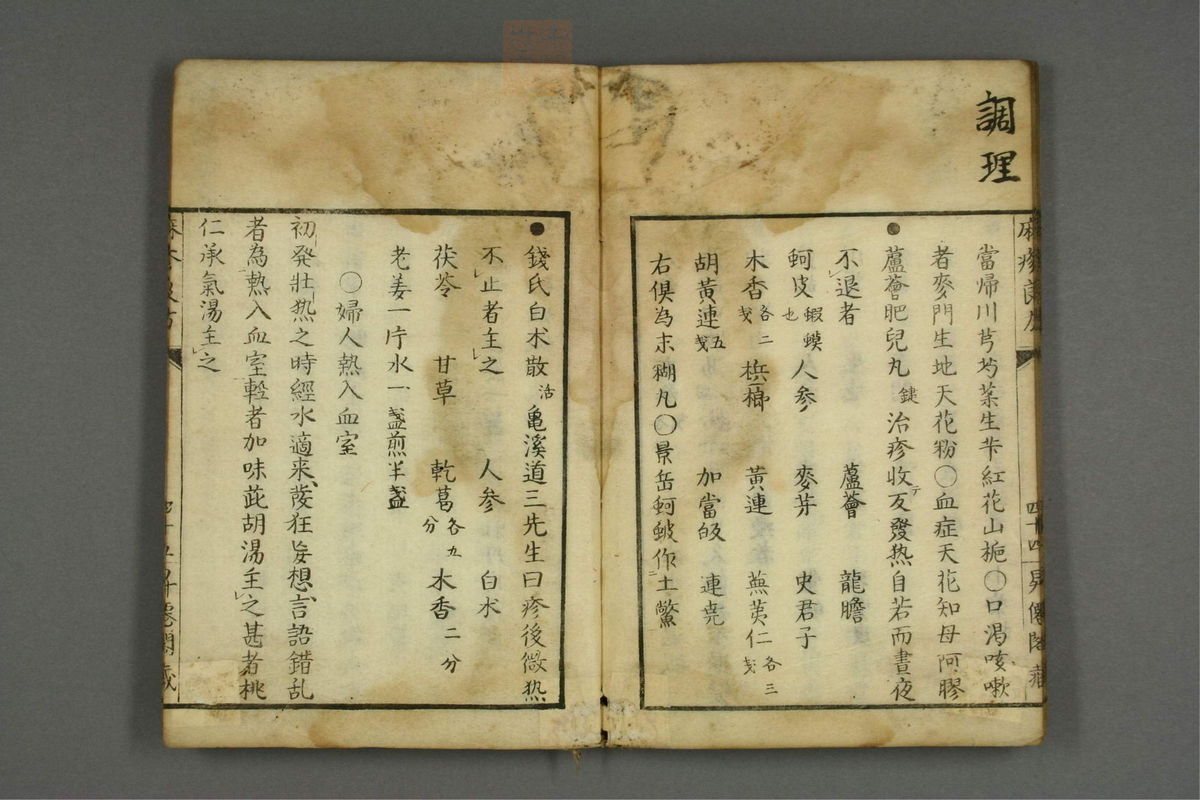 調理
當帰川芎芍薬生芐紅花山梔〇口渇咳嗽
者麥門生地天花粉〇血症天花知母阿膠
●蘆薈肥兒丸 鍵 治疹收后發热自若而晝夜
不退者 蘆薈 龍膽
蚵皮 蝦蟆也 人参 麥芽 史君子
木香 各二戔 梹榔 黃連 蕪荑仁 各三戔
胡黃連 五戔 加當皈 連尭
右俱為末糊丸〇景岳蚵蚾作土鱉
●錢氏白朮散 活 亀溪道三先生曰疹後微热
不止者主之 人参 白朮
茯苓 甘草 乾葛 各五分 木香 二分
老姜一片水一盞煎半盞
〇婦人熱入血室
初発壮热之時經水適来發狂妄想言語錯乱
者為熱入血室輕者加味茈胡湯主之甚者桃
仁承氣湯主之